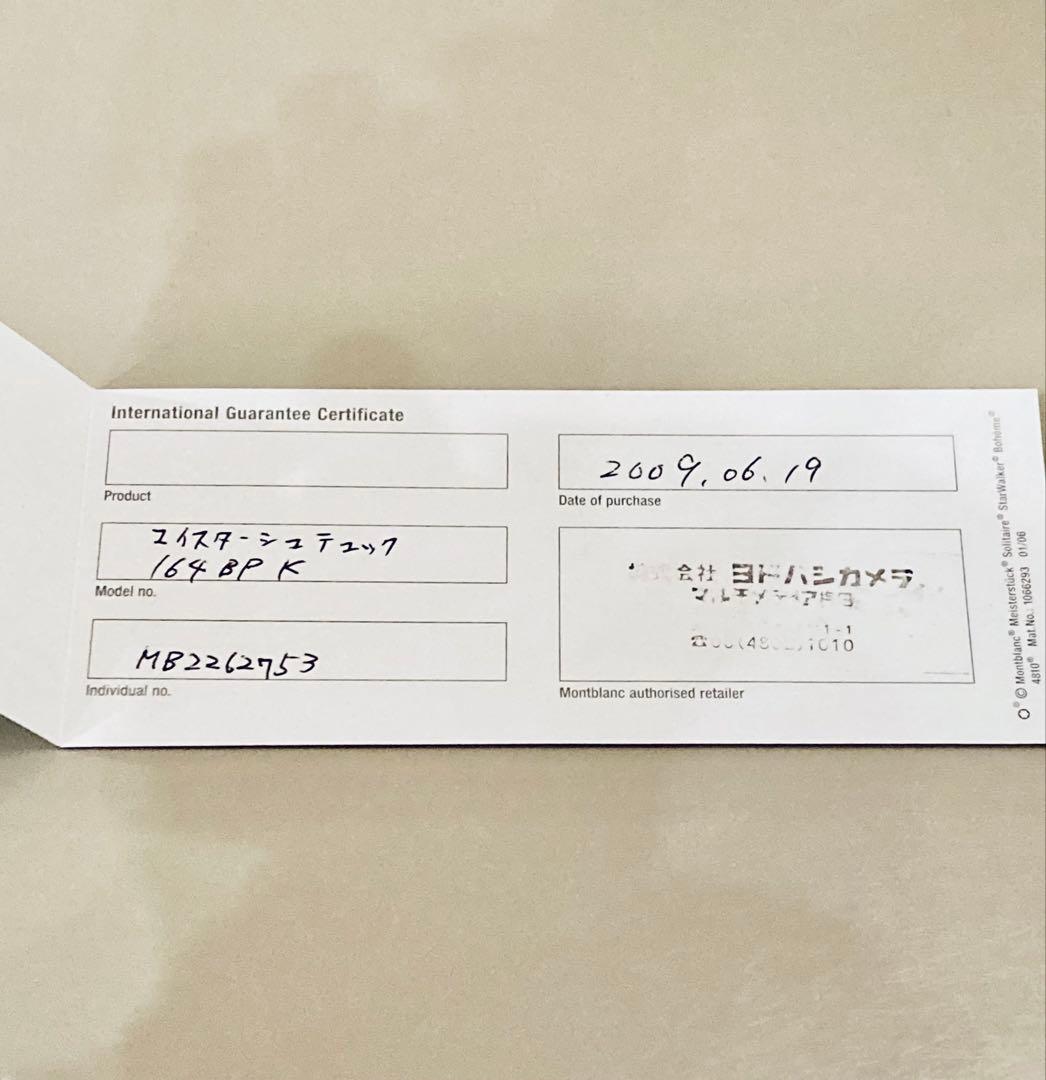 International Guarantee Certificate
Product
2009.06.19
Date of purchase
マイスターシュテュック
164 BP K
Model no.
MB2262753
Individual no.
会社 ヨドバシカメラ
1-1
1010
Montblanc authorised retailer
® © Montblanc® Meisterstück® Solitaire® StarWalker® Bohème®
4810® Mat.No.: 1066293 01/06